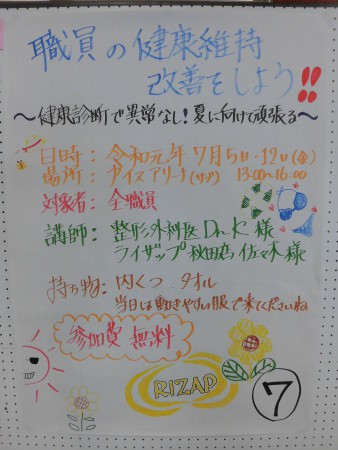 職員の健康維持
改善をしよう!!
～健康診断で異常なし!夏に向けて頑張る～
日時：令和元年7月5日・19日(金)
場所：アイスアリーナ(サブ) 13:00～16:00
対象者：全職員
講師：整形外科医Dr.K様
ライザップ秋田店 佐々木様
持ち物：内くつ タオル
当日は動きやすい服で来てくださいね
参加費 無料
RIZAP
7